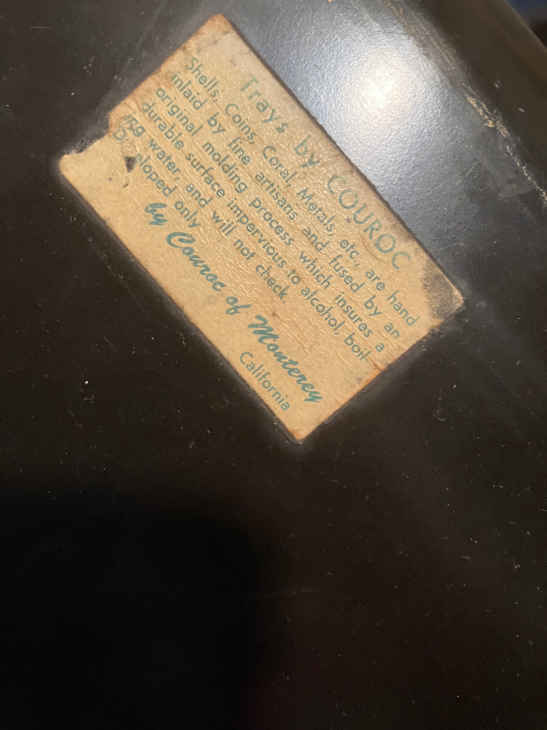 Trays by COUROC
Shells, Coins, Coral, Metals, etc., are hand
inlaid by fine artisans and fused by an
original molding process which insures a
durable surface impervious to alcohol, boil-
water, and will not check.
oped only
by Couroc of Monterey
California